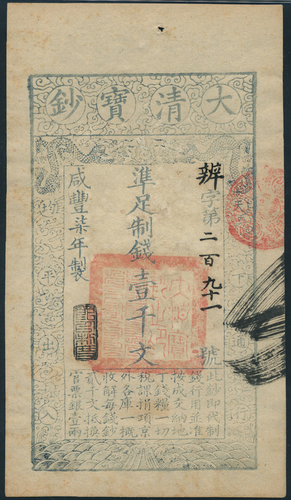 大清寶鈔
天下通行
辨字第二百九十一號
準足制錢壹千文
咸豐柒年製
均平出入
此鈔即代制
錢行用並准
按成交納地
丁錢糧一切
稅課捐項京
外各庫一概
收解每錢鈔
貳千文抵換
官票銀壹兩